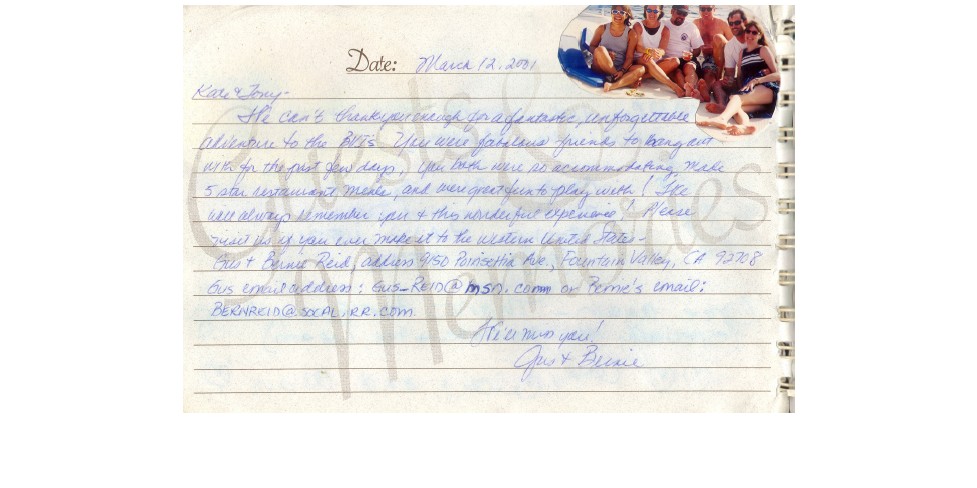 Guests & Memories
Date: March 12, 2001
Kate & Tony -
We can't thank you enough for a fantastic, unforgettable
adventure to the BVI's. You were fabulous friends to hang out
with for the past few days, you both were so accommodating, make
5 star restaurant meals, and were great fun to play with! We
will always remember you & this wonderful experience! Please
visit us if you ever make it to the western United States -
Gus & Bernie Reid, address 9150 Poinsettia Ave, Fountain Valley, CA 92708
Gus email address: GUS_REID@msn.comm or Bernie's email:
BERNREID@SOCAL.RR.COM.
We'll miss you!
Gus & Bernie